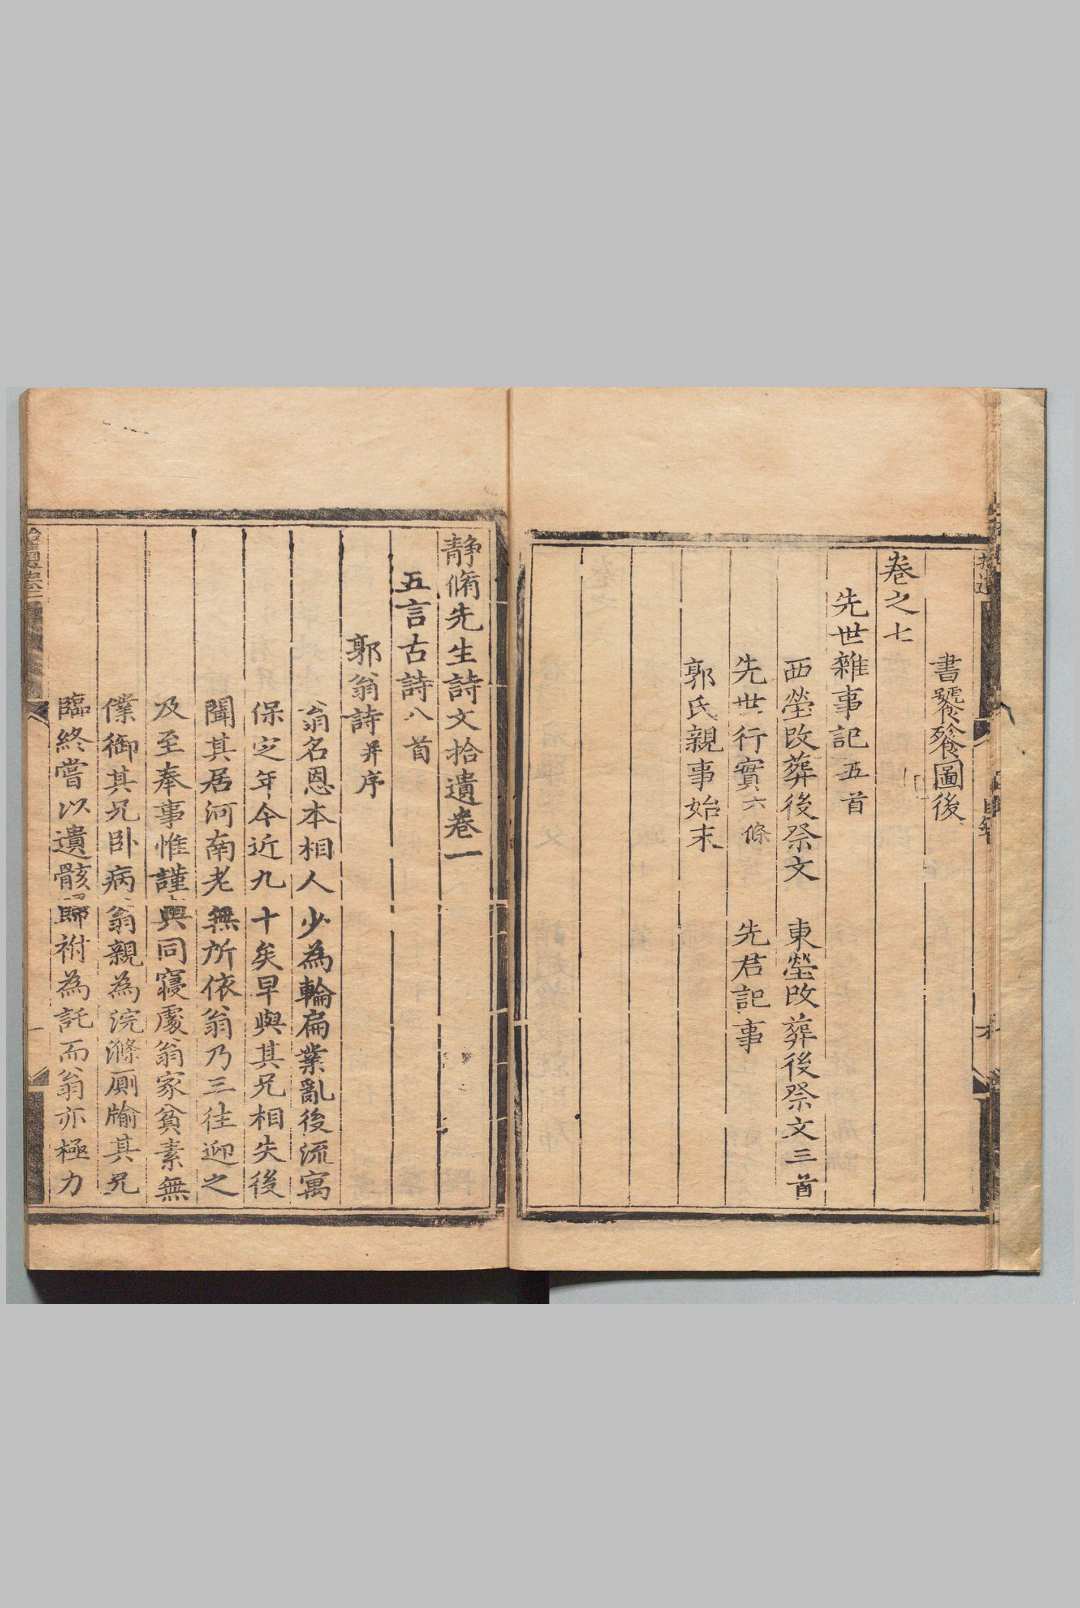 書饕餮圖後
卷之七
先世雜事記五首
西塋改葬後祭文 東塋改葬後祭文三首
先世行實六條 先君記事
郭氏親事始末
靜脩先生詩文拾遺卷一
五言古詩八首
郭翁詩并序
翁名恩本相人少為輪扁業亂後流寓
保定年今近九十矣早與其兄相失後
聞其居河南老無所依翁乃三往迎之
及至奉事惟謹與同寢處翁家貧素無
僕御其兄卧病翁親為浣滌厠牏其兄
臨終嘗以遺骸歸祔為託而翁亦極力